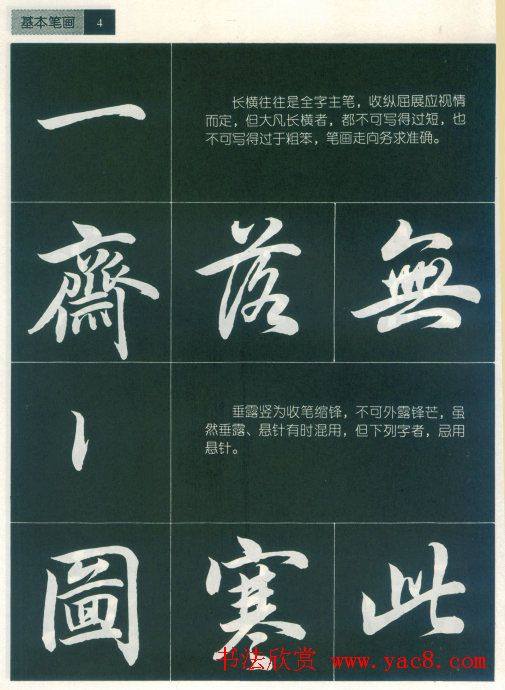 基本笔画 4
一
长横往往是全字主笔，收纵屈展应视情
而定，但大凡长横者，都不可写得过短，也
不可写得过于粗笨，笔画走向务求准确。
齋 落 無
丨
垂露竖为收笔缩锋，不可外露锋芒，虽
然垂露、悬针有时混用，但下列字者，忌用
悬针。
圖 寒 此
书法欣赏 www.yac8.com